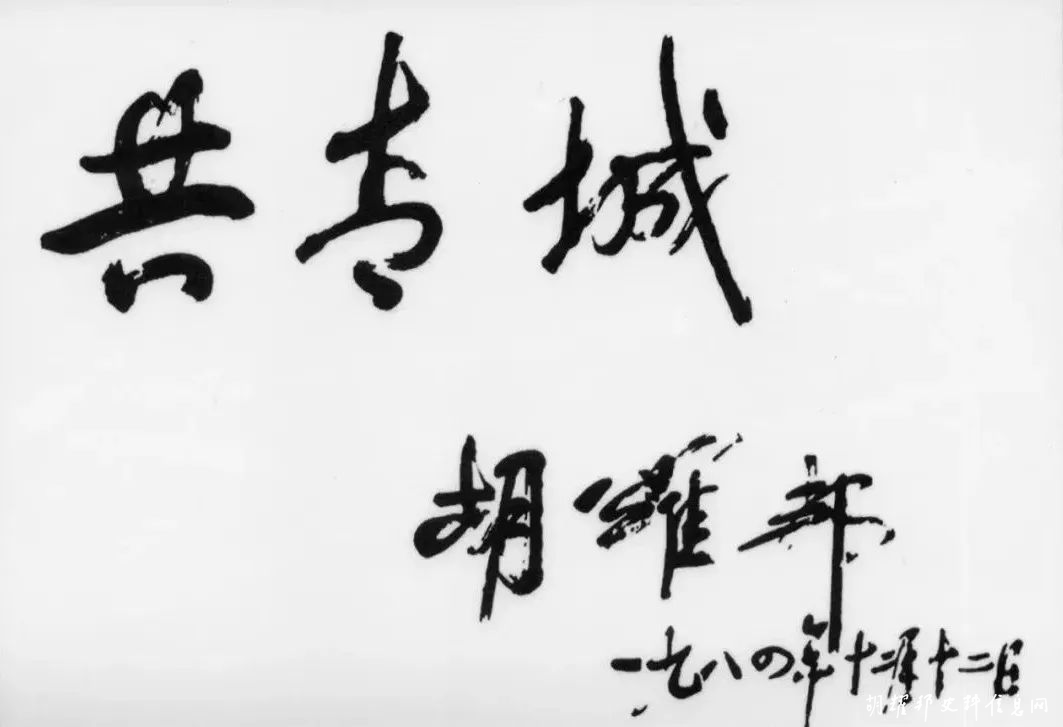 共青城
胡耀邦
一九八四年十二月十二日
胡耀邦史料信息网